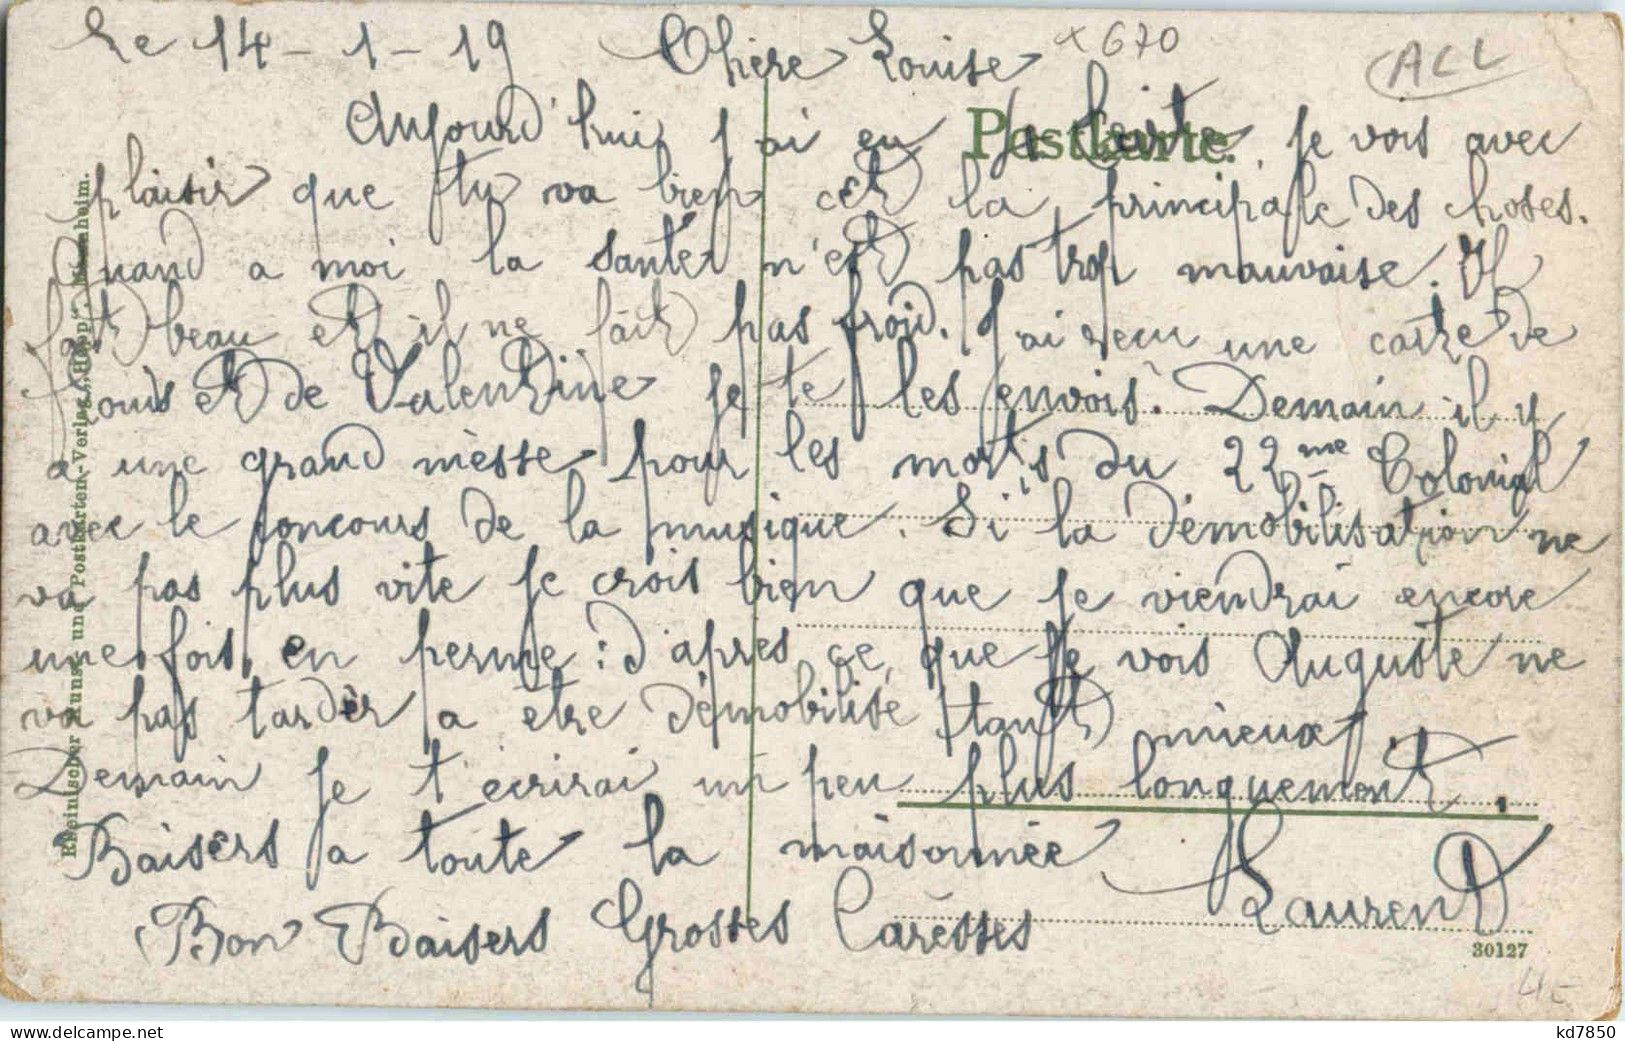 Le 14-1-19 Chère Louise x 670 ALL
Postkarte.
Aujourd'hui j'ai eu ta lettre, je vois avec
plaisir que tu va bien cet la principale des choses.
Quand a moi la santér n'est pas trop mauvaise. Il
fait beau et il ne fait pas froid. J'ai recu une carte de
Louis et de Valentine je te les envois. Demain il y
a une grand mèsse pour les morts du 22me Colonial
avec le concours de la musique. Si la démobilisation ne
va pas plus vite je crois bien que je viendrai encore
une fois, en perme : d'apres ce que je vois Auguste ne
va pas tarder a etre démobilisé tant mieux.
Demain je t'écrirai un peu plus longuement.
Baisers a toute la maisonnée Laurend
Bon Baisers Grosses Carèsses
30127
4-
Rheinischer Kunst- und Postkarten-Verlag „Hepp", Mannheim.
www.delcampe.net
kd7850